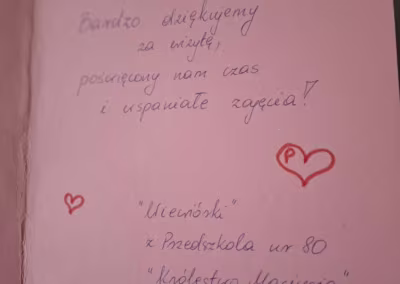 Bardzo dziękujemy
za wizytę,
poświęcony nam czas
i wspaniałe zajęcia!
P
"Wiewiórki"
z Przedszkola nr 80
"Królestwo Maciusia"